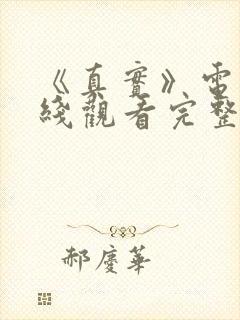 《真實》電
綫觀看完整
郝慶華